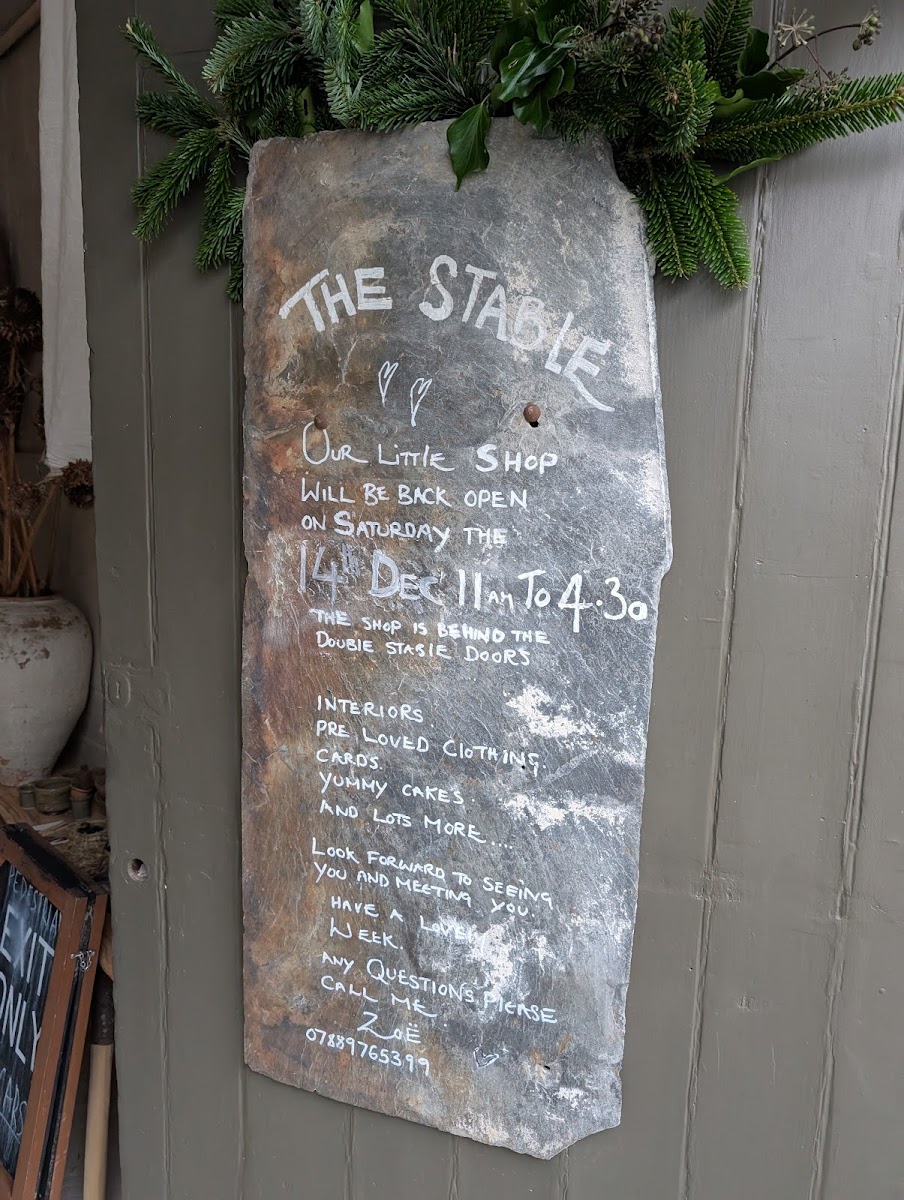 THE STABLE
OUR LITTLE SHOP
WILL BE BACK OPEN
ON SATURDAY THE
14TH DEC 11AM TO 4.30
THE SHOP IS BEHIND THE
DOUBLE STABLE DOORS
INTERIORS
PRE LOVED CLOTHING.
CARDS.
YUMMY CAKES.
AND LOTS MORE....
LOOK FORWARD TO SEEING
YOU AND MEETING YOU.
HAVE A LOVELY
WEEK.
ANY QUESTIONS PLEASE
CALL ME.
ZOË
07889765399
EXIT
ONLY